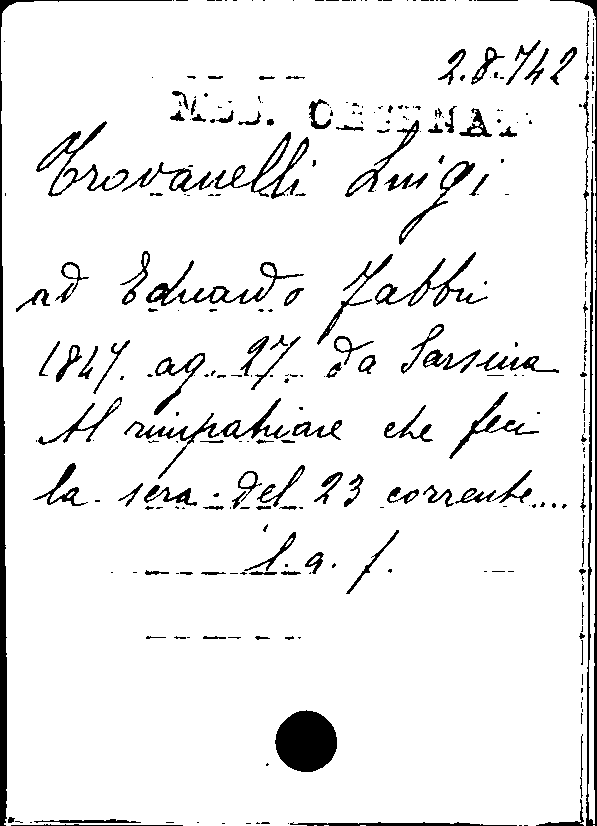 2.8.742
MSS.
Trovanelli Luigi
ad Eduardo Fabbri
1847. ag. 27. da Sarsina
Al rimpatriare che feci
la sera del 23 corrente....
l. a. f.